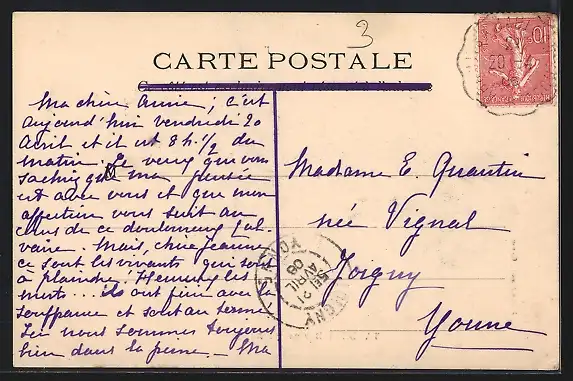 3
CARTE POSTALE
Ma chère amie ; c'est
aujourd'hui vendredi 20
avril et il est 8 h. 1/2 du
matin. Je veux que vous
sachiez que ma pensée
est avec vous et que mon
affection vous suit au
cours de ce douloureux Cal-
vaire. Mais, chère Jeanne
ce sont les vivants qui sont
à plaindre ! Heureux les
morts... ils ont fini avec la
souffrance et sont au terme.
Ici nous sommes toujours
bien dans la peine – Ma
Madame E. Quantin
née Vignal
Joigny
Yonne
10c
20
JOIGNY
21
AVRIL
06